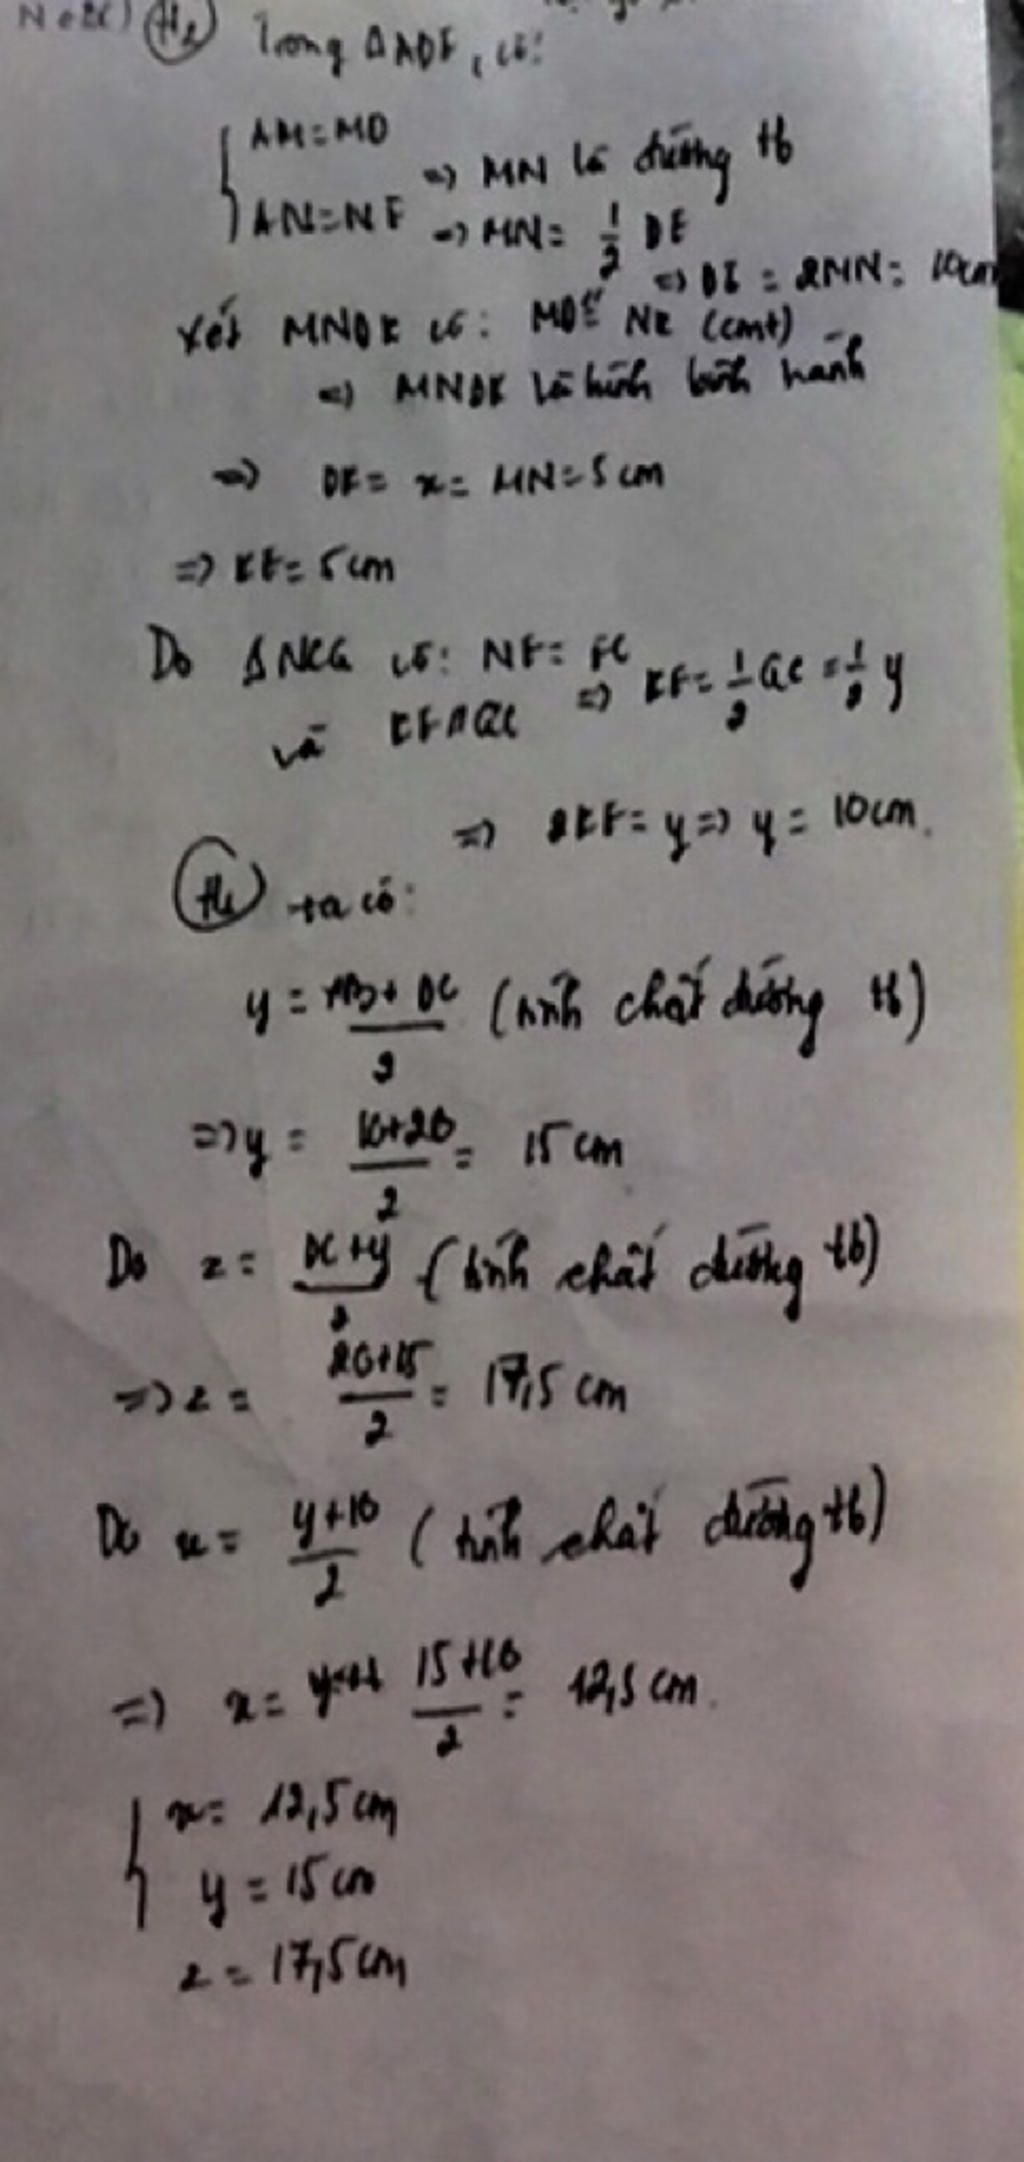 H2 Trong ΔADF, có:
{ AM=MD
=> MN là đường tb
AN=NF => MN= 1/2 DF
=> DF = 2MN= 10cm
Xét MNDK có: MD NK (cmt)
=> MNDK là hình bình hành
=> DK= x= MN=5cm
=> KF= 5cm
Do ΔNCG có: NF= FC => KF= 1/2 GC = 1/2 y
và KF//GC
=> 2KF= y => y = 10cm.
H1 ta có:
y = AB+DC/2 (tính chất đường tb)
=> y = 10+20/2 = 15cm
Do z= DC+y/2 (tính chất đường tb)
=> z= 20+15/2 = 17,5 cm
Do x= y+10/2 (tính chất đường tb)
=> x= 15+10/2 = 12,5 cm.
{ x= 12,5cm
y = 15cm
z = 17,5cm